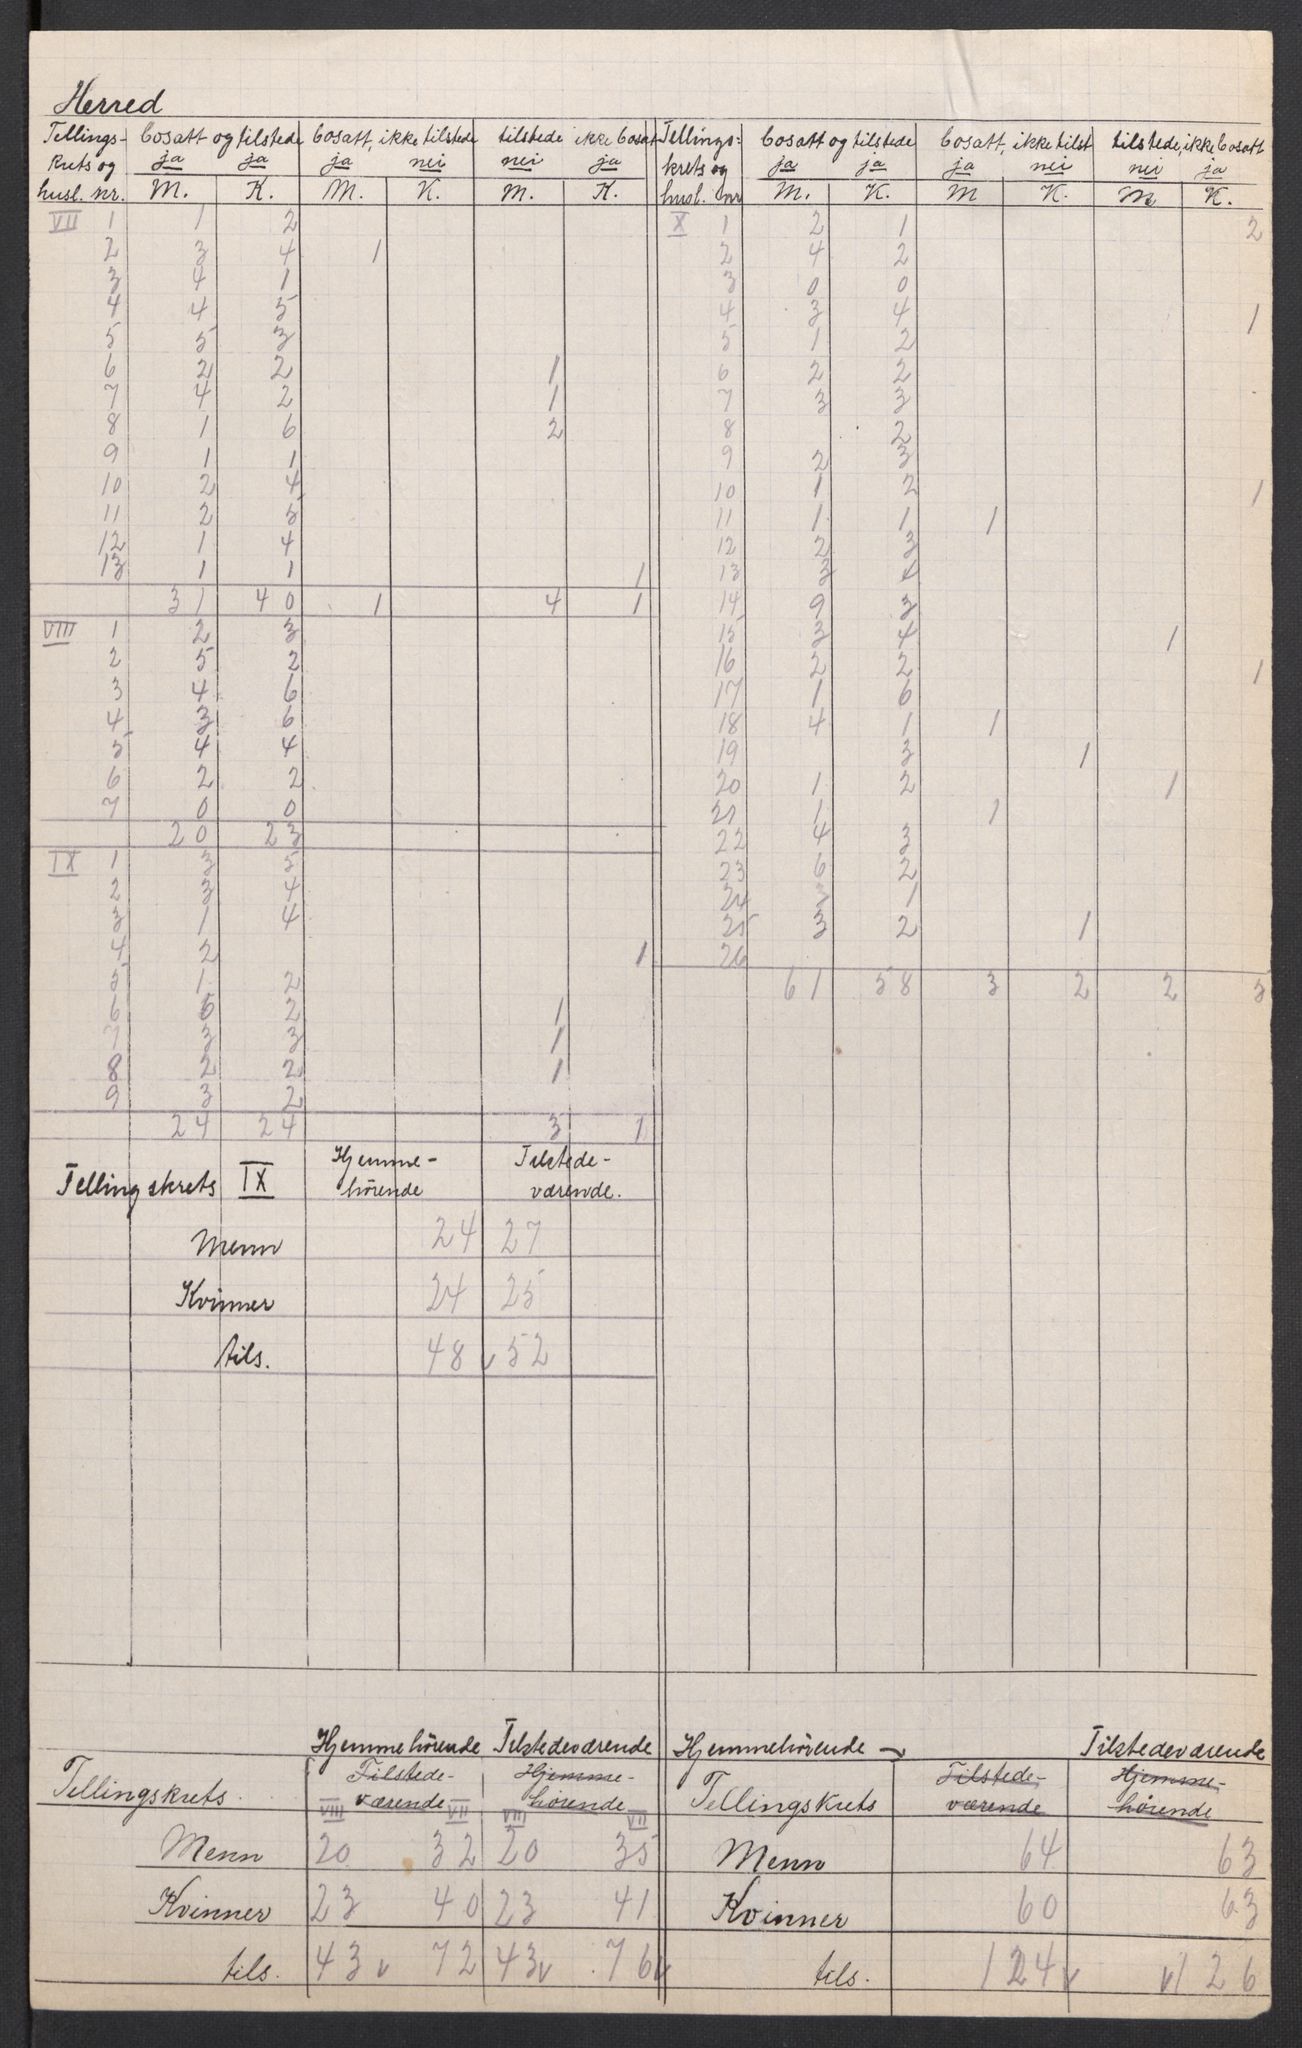 Herred
Tellings- bosatt og tilstede bosatt, ikke tilstede tilstede ikke bosatt
krets og ja ja ja nei nei ja
husl. nr. M. K. M. K. M. K.
VII 1 1 2
2 3 4 1
3 4 1
4 4 5
5 5 3
6 2 2 1
7 4 2 1
8 1 6 2
9 1 1
10 2 4
11 2 5
12 1 4
13 1 1 1
31 40 1 4 1
VIII 1 2 3
2 5 2
3 4 6
4 3 6
5 4 4
6 2 2
7 0 0
20 23
IX 1 3 5
2 3 4
3 1 4
4 2 1
5 1 2
6 6 2 1
7 3 3 1
8 2 2 1
9 3 2
24 24 3 1
Tellingskrets IX Hjemme- Tilstede-
hörende værende.
Menn 24 27
Kvinner 24 25
tils. 48 v 52
Tellings- bosatt og tilstede bosatt, ikke tilst tilstede, ikke bosatt
krets og ja ja ja nei nei ja
husl. nr M. K. M K. M K.
X 1 2 1 2
2 4 2
3 0 0
4 3 4 1
5 1 2
6 2 2
7 3 3
8 2
9 2 3
10 1 2 1
11 1 1 1
12 2 3
13 3
14 9 3
15 3 4 1
16 2 2 1
17 1 6
18 4 1 1
19 3 1
20 1 2 1
21 1 1
22 4 3
23 6 2
24 3 1
25 3 2 1
26
61 58 3 2 2 5
Hjemmehörende Tilstedeværende
Tellingskrets. Tilstede- Hjemme-
VIII værende VII VIII hörende VII
Menn 20 32 20 35
Kvinner 23 40 23 41
tils. 43 v 72 43 v 76 v
Hjemmehörende Tilstedeværende
Tellingskrets Tilstede- Hjemme-
værende hörende
Menn 64 63
Kvinner 60 63
tils. 124 v v 126